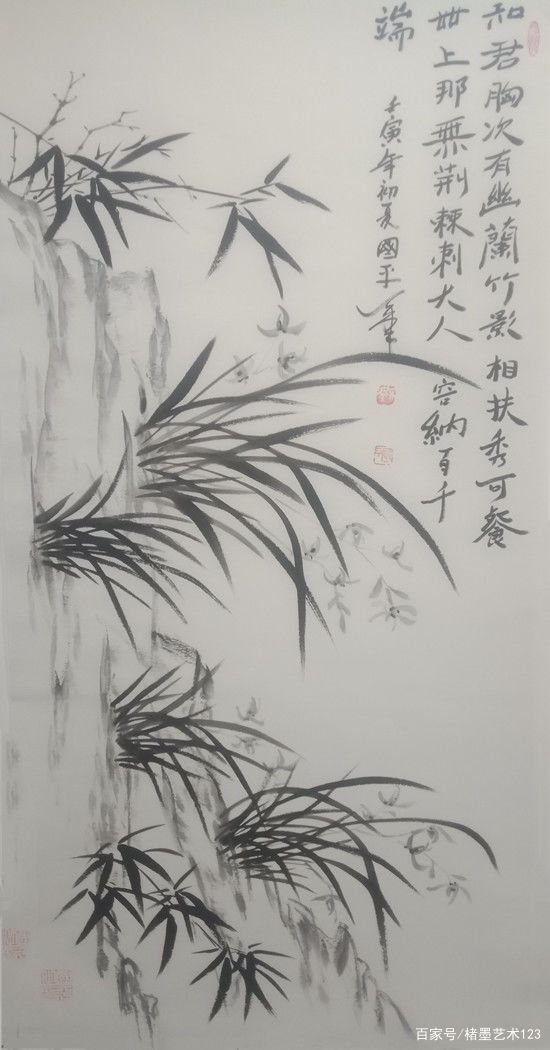 知君胸次有幽蘭竹影相扶秀可餐
世上那無荆棘刺大人容納百千
端
壬寅年初夏國平筆
百家号/楮墨艺术123